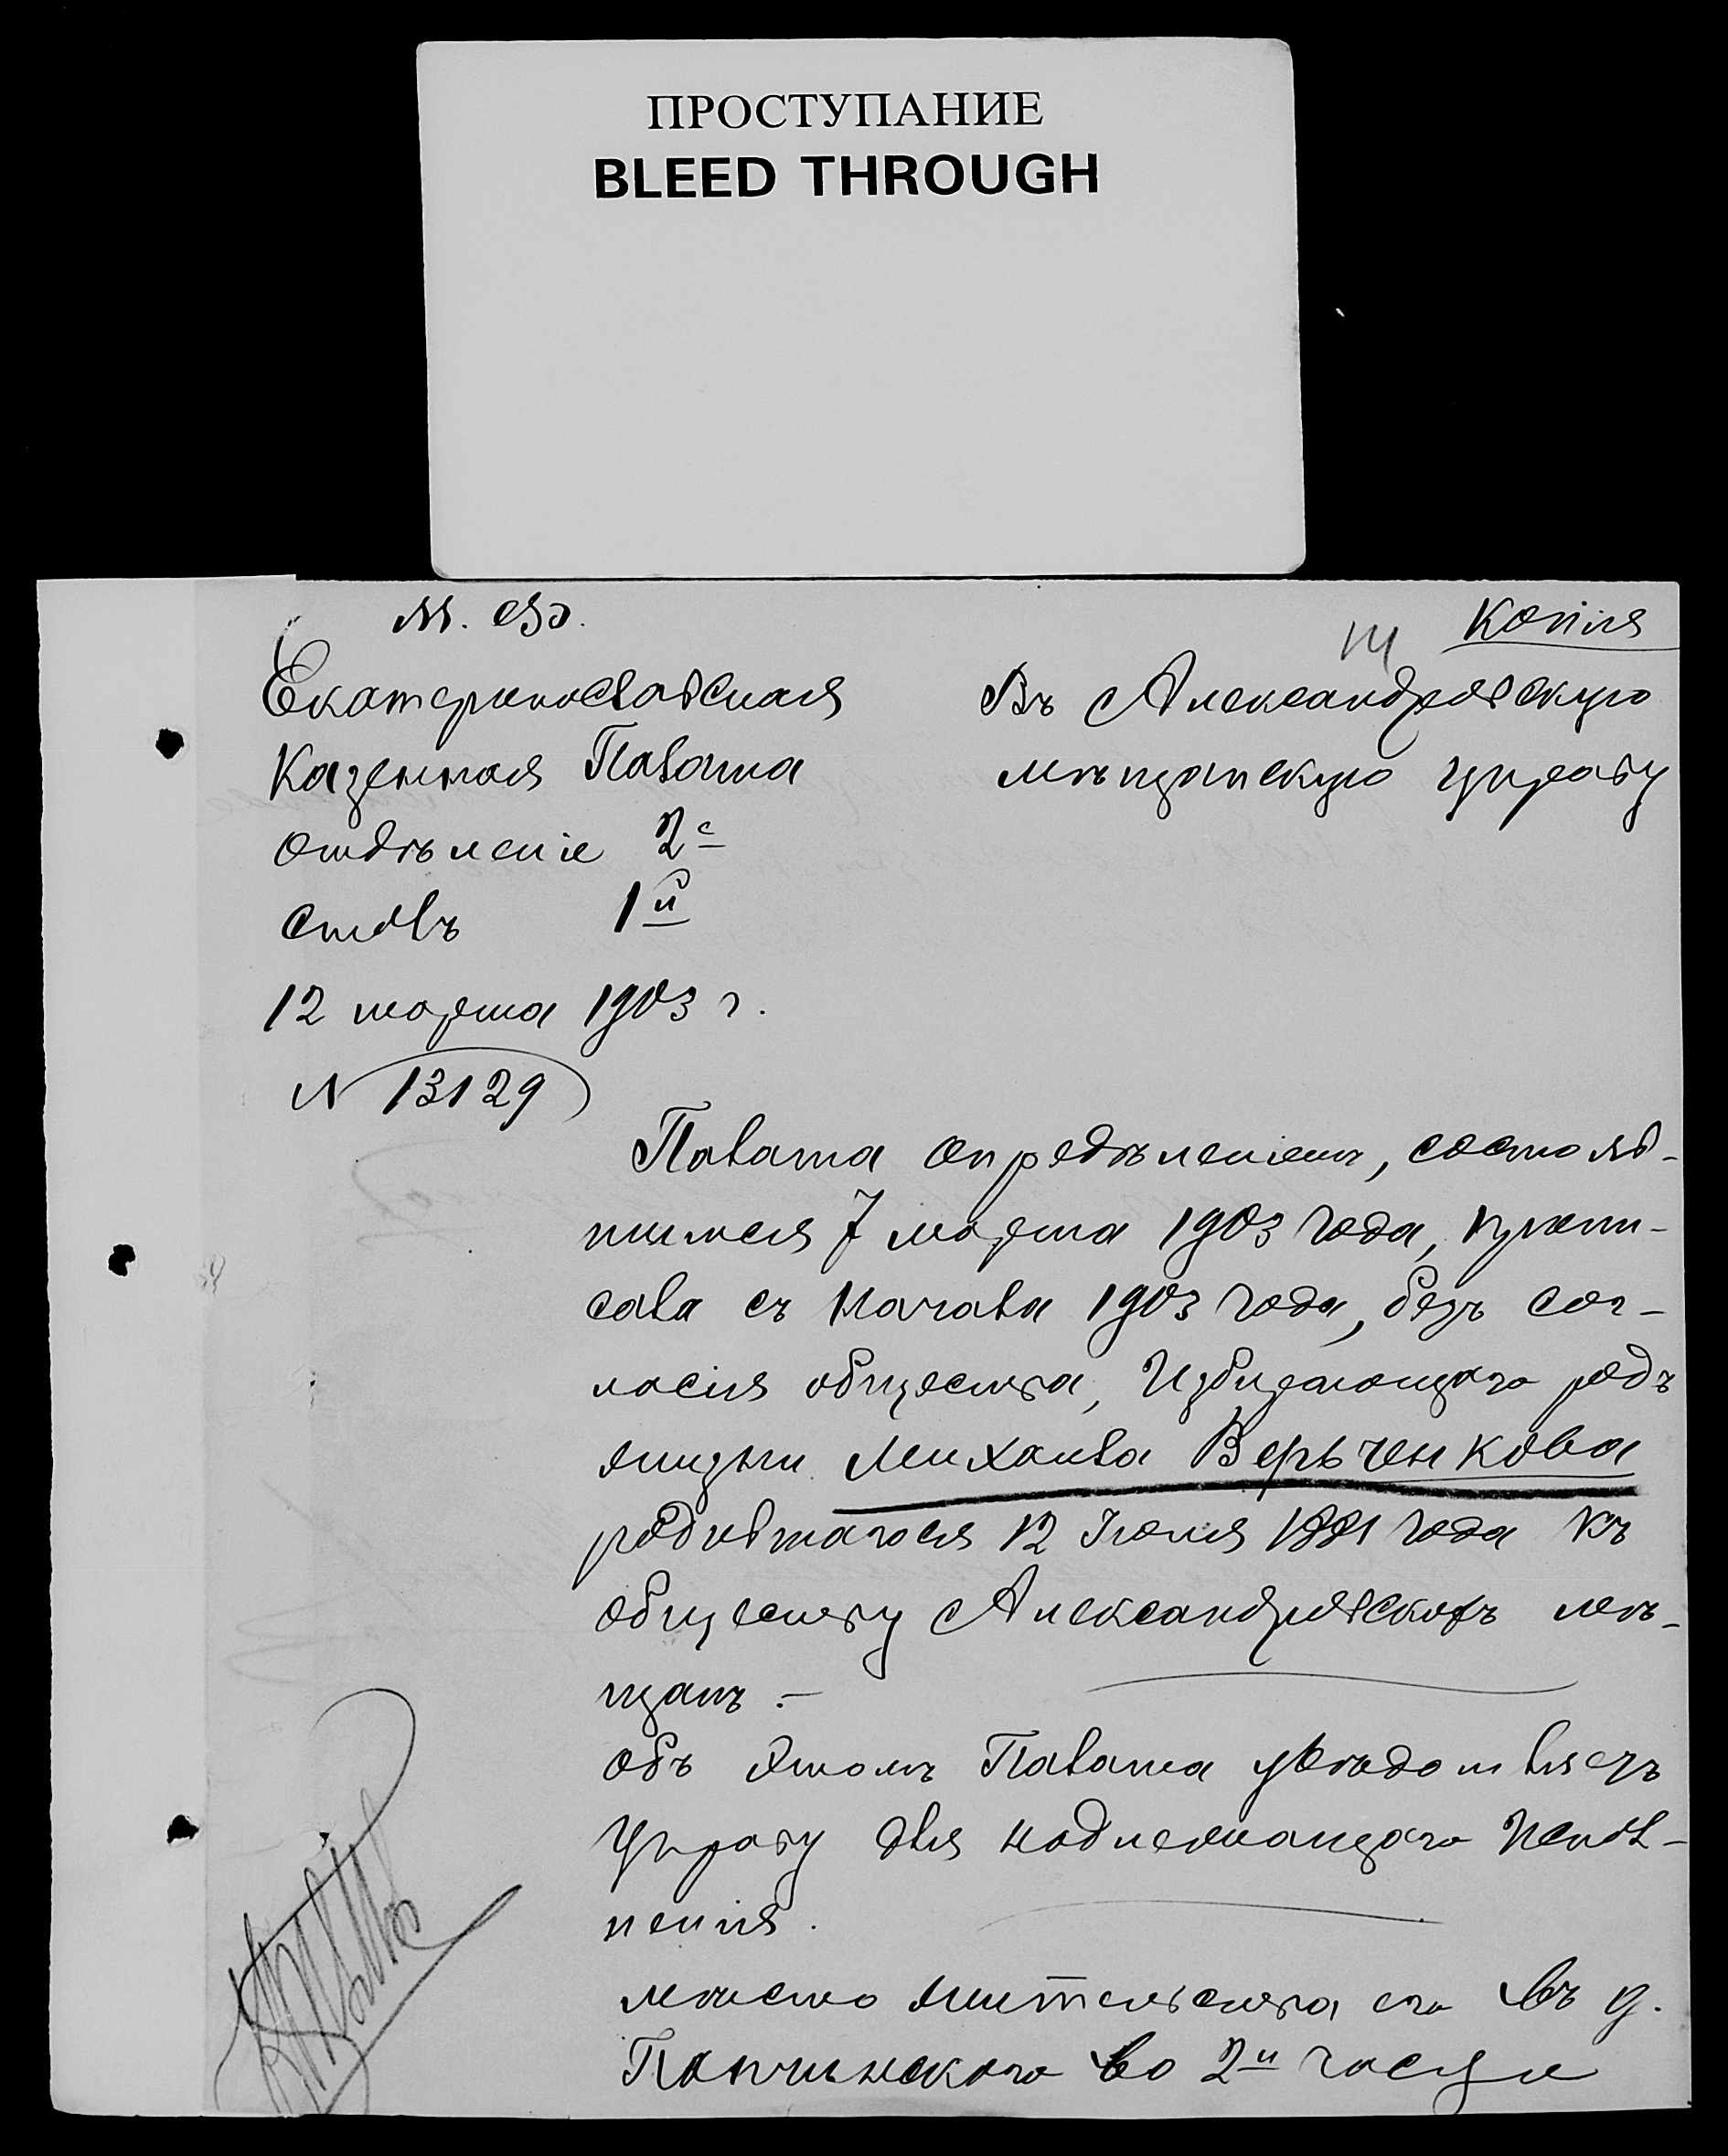 ПРОСТУПАНИЕ
BLEED THROUGH
М. В. Д.
Копія
Екатеринославская
Казенная Палата
Отдѣленіе 2е
Столъ 1й
12 марта 1903 г.
N 13129
Въ Александровскую
мѣщанскую управу
Палата опредѣленіемъ, состояв-
шимся 7 марта 1903 года, припи-
сала съ начала 1903 года, безъ сог-
ласія общества, Избирающаго родъ
жизни Михаила Верьченкова
родившагося 12 Іюля 1881 года къ
обществу Александровскихъ мѣ-
щанъ.-
Объ этомъ Палата увѣдомляетъ
Управу для надлежащаго исполн-
ненія.
мѣсто жительства его въ д.
во 2й части